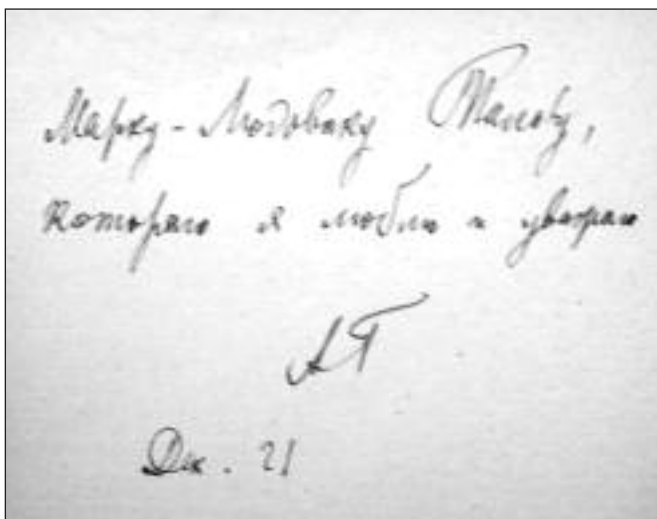 Марку-Людовику Талову,
котораго я люблю и уважаю
АГ
Дек. 21